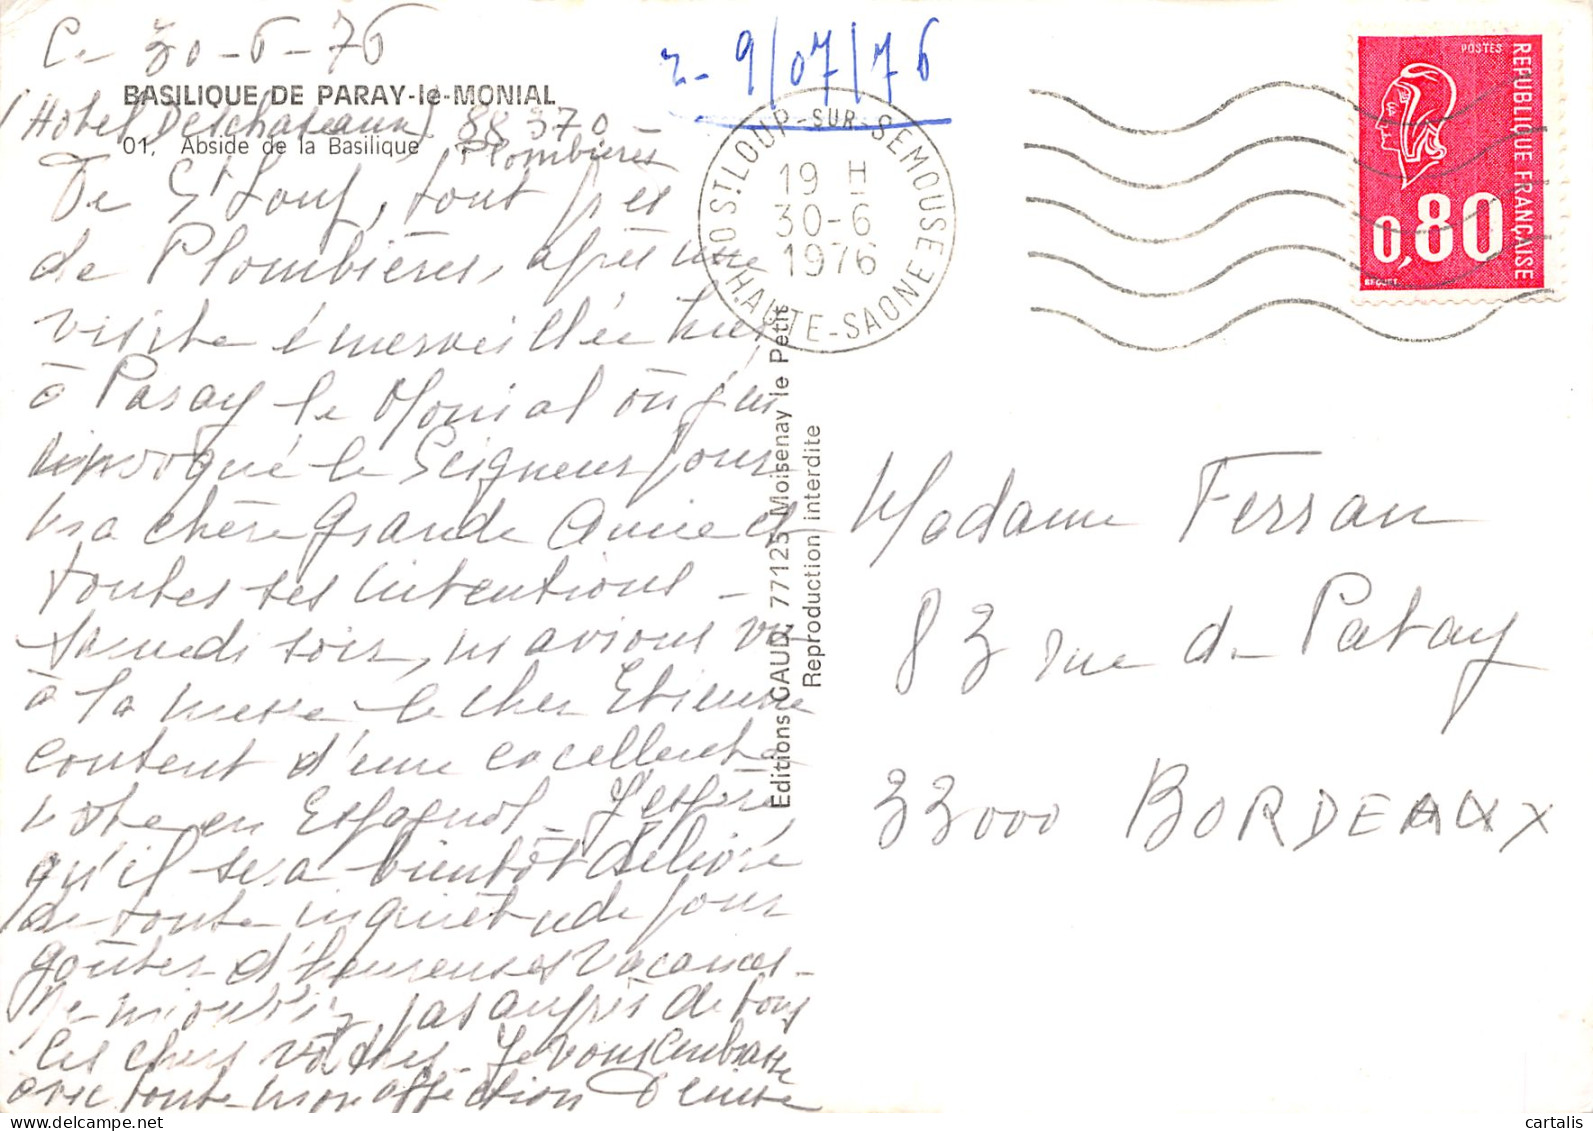 Ce 30-6-76
r- 9/07/76
BASILIQUE DE PARAY-le-MONIAL
Hotel Deschaseaux 88370
01, Abside de la Basilique
Plombières
De St Loup, tout près
de Plombières, après une
visite émerveillée hier
à Paray le Monial où j'ai
invoqué le Seigneur pour
ma chère grande Amie et
toutes ses intentions -
Samedi soir, ns avions vu
à la messe le cher Etienne
content d'une excellente
note en Espagnol - J'espère
qu'il sera bientôt délivré
de toute inquiétude pour
goûter d'heureuses vacances -
Ne m'oubliez pas auprès de tous
les chers vôtres - Je vous embrasse
avec toute mon affection Denise
Editions GAUD, 77125 Moisenay le Petit
Reproduction interdite
70 ST LOUP-SUR-SEMOUSE
19 H
30-6
1976
HAUTE-SAONE
POSTES
REPUBLIQUE FRANÇAISE
0,80
BEQUET
Madame Ferran
83 rue de Patay
33000 BORDEAUX
cartalis.com